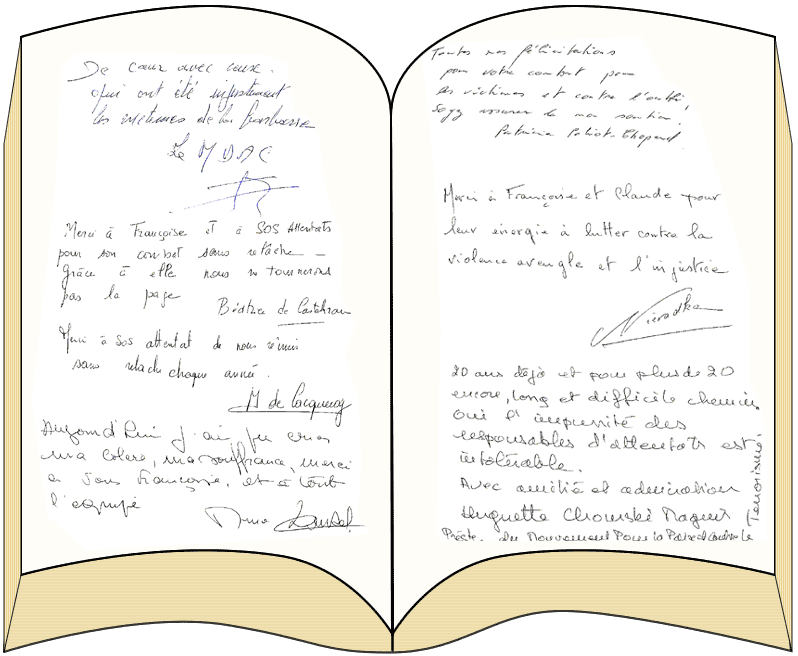 De cœur avec ceux
qui ont été injustement
les victimes de la barbarie
Le M
Merci à Françoise et à SOS Attentats
pour son combat sans relâche –
Grâce à elle nous ne tournerons
pas la page
Béatrice de
Merci à SOS attentat de nous réunir
sans relache chaque année.
M de
Aujourd'hui j'ai pu crier
ma colère, ma souffrance, merci
a Françoise, et à tout
l'equipe
Toutes mes félicitations
pour votre combat pour
les victimes et contre l'oubli,
Soyez assurer de mon soutien.
Patricia
Merci à Françoise et Claude pour
leur énergie à lutter contre la
violence aveugle et l'injustice
20 ans déjà et pour plus de 20
encore, long et difficile chemin,
où l'impunité des
responsables d'attentats est
intolérable.
Avec amitié et admiration
Huguette Chomski Magnis
Pdte. du Mouvement Pour la Paix et Contre le
Terrorisme.